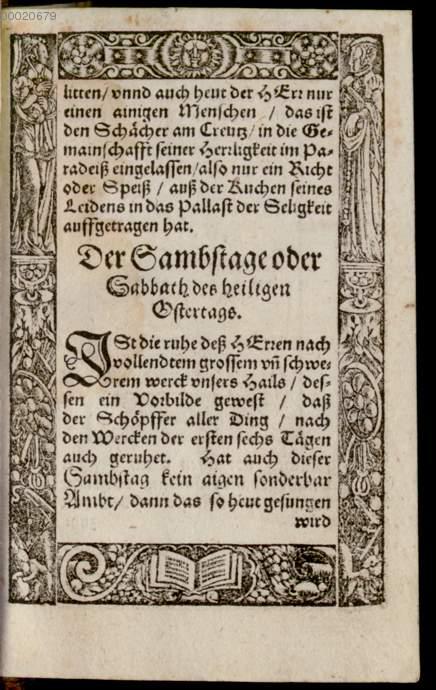 00020679
litten/ vnnd auch heut der HErr nur
einen ainigen Menschen / das ist
den Schächer am Creutz/ in die Ge-
mainschafft seiner Herrligkeit im Pa-
radeiß eingelassen/also nur ein Richt
oder Speiß / auß der Kuchen seines
Leidens in das Pallast der Seligkeit
auffgetragen hat.
Der Sambstage oder
Sabbath des heiligen
Ostertags.
ISt die ruhe deß HErren nach
vollendtem grossem vñ schwe-
rem werck vnsers Hails / des-
sen ein Vorbilde gewest / daß
der Schöpffer aller Ding / nach
den Wercken der ersten sechs Tägen
auch geruhet. Hat auch dieser
Sambstag kein aigen sonderbar
Ambt/ dann das so heut gesungen
wird